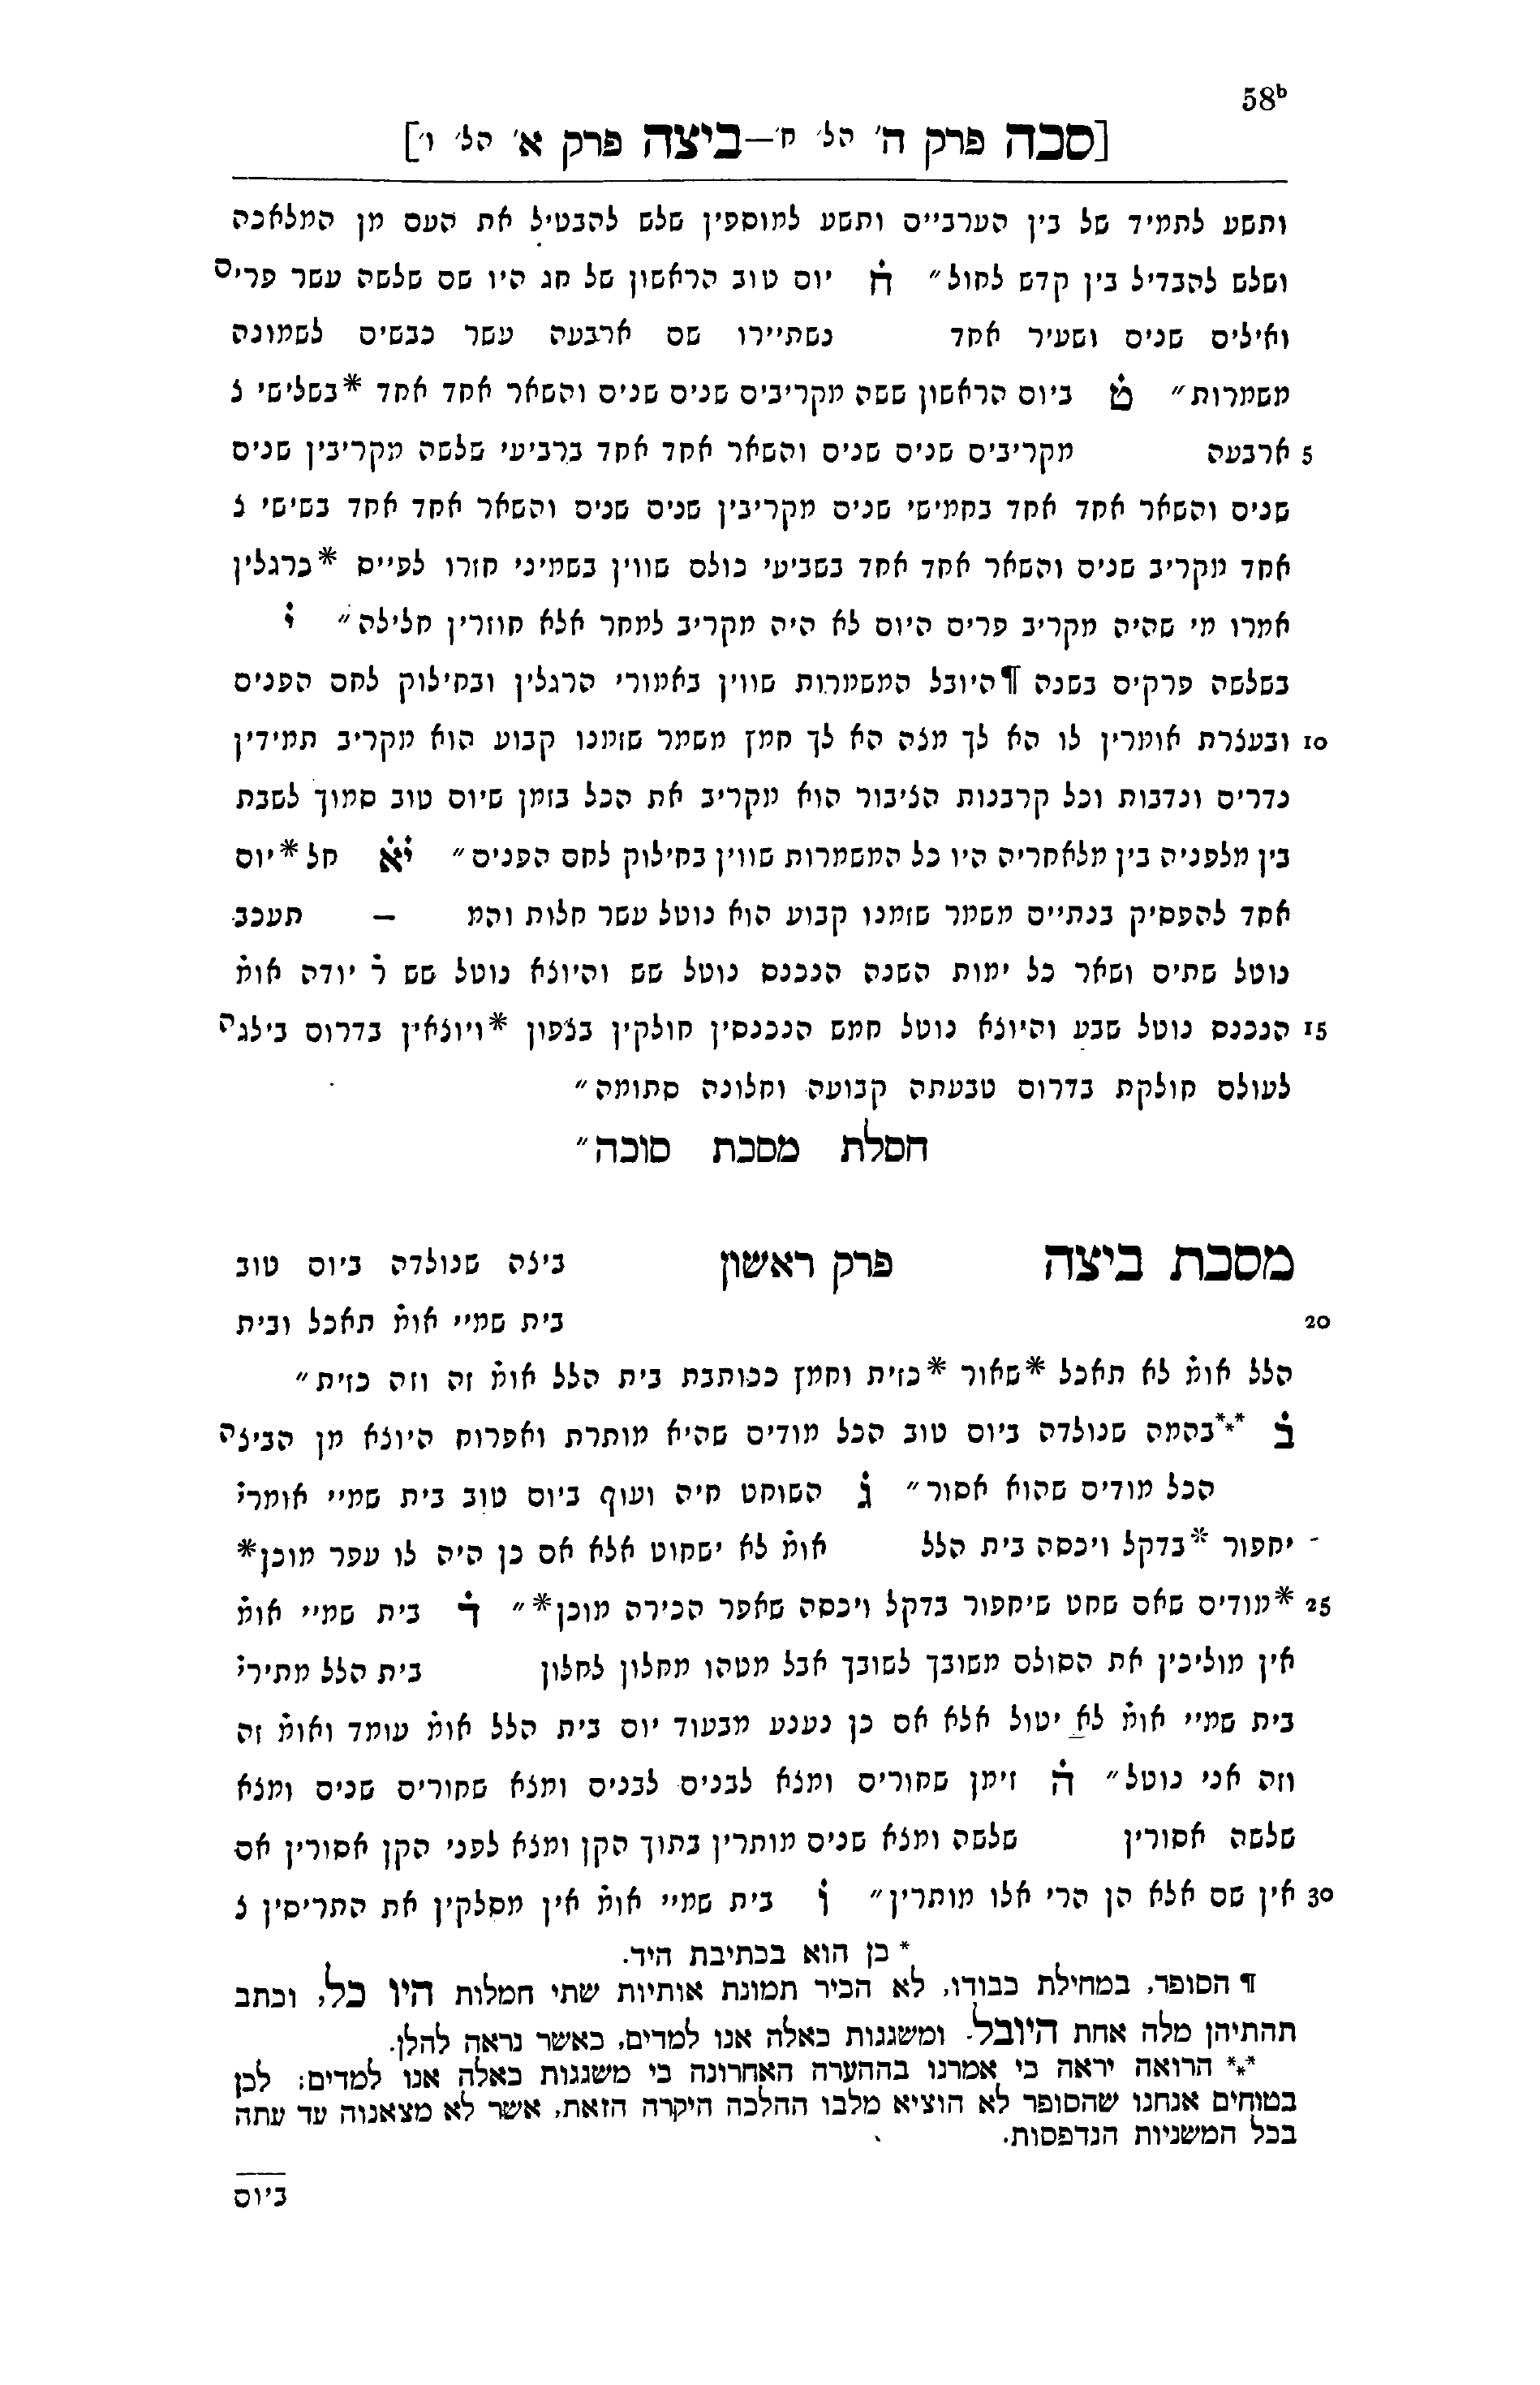 58b
[סכה פרק ה' הל' ח'—ביצה פרק א' הל' ו']
ותשע לתמיד של בין הערביים ותשע למוספין שלש להבטיל את העם מן המלאכה
ושלש להבדיל בין קדש לחול״ ח יום טוב הראשון של חג היו שם שלשה עשר פרים
ואילים שנים ושעיר אחד נשתיירו שם ארבעה עשר כבשים לשמונה
משמרות״ ט ביום הראשון ששה מקריבים שנים שנים והשאר אחד אחד *בשלישי צ
5 ארבעה מקריבים שנים שנים והשאר אחד אחד ברביעי שלשה מקריבין שנים
שנים והשאר אחד אחד בחמישי שנים מקריבין שנים שנים והשאר אחד אחד בשישי צ
אחד מקריב שנים והשאר אחד אחד בשביעי כולם שווין בשמיני חזרו לפייס *כרגלין
אמרו מי שהיה מקריב פרים היום לא היה מקריב למחר אלא חוזרין חלילה״ י
בשלשה פרקים בשנה ¶היובל המשמרות שווין באמורי הרגלין ובחילוק לחם הפנים
10 ובעצרת אומרין לו הא לך מצה הא לך חמץ משמר שזמנו קבוע הוא מקריב תמידין
נדרים ונדבות וכל קרבנות הציבור הוא מקריב את הכל בזמן שיום טוב סמוך לשבת
בין מלפניה בין מלאחריה היו כל המשמרות שווין בחילוק לחם הפנים״ יא חל *יום
אחד להפסיק בנתיים משמר שזמנו קבוע הוא נוטל עשר חלות והמ — תעכב
נוטל שתים ושאר כל ימות השנה הנכנס נוטל שש והיוצא נוטל שש ר̇ יודה אומ̇
15 הנכנס נוטל שבע והיוצא נוטל חמש הנכנסין חולקין בצפון *ויוצאין בדרום בילגה
לעולם חולקת בדרום טבעתה קבועה וחלונה סתומה״
חסלת מסכת סוכה״
מסכת ביצה פרק ראשון ביצה שנולדה ביום טוב
20 בית שמיי אומ̇ תאכל ובית
הלל אומ̇ לא תאכל *שאור *כזית וחמץ ככותבת בית הלל אומ̇ זה וזה כזית״
ב ***בהמה שנולדה ביום טוב הכל מודים שהיא מותרת ואפרוח היוצא מן הביצה
הכל מודים שהוא אסור״ ג השוחט חיה ועוף ביום טוב בית שמיי אומרי̇
יחפור *בדקל ויכסה בית הלל אומ̇ לא ישחוט אלא אם כן היה לו עפר מוכן*
25 *מודים שאם שחט שיחפור בדקל ויכסה שאפר הכירה מוכן*״ ד בית שמיי אומ̇
אין מוליכין את הסולם משובך לשובך אבל מטהו מחלון לחלון בית הלל מתירי̇
בית שמיי אומ̇ לא יטול אלא אם כן נענע מבעוד יום בית הלל אומ̇ עומד ואומ̇ זה
וזה אני נוטל״ ה זימן שחורים ומצא לבנים לבנים ומצא שחורים שנים ומצא
שלשה אסורין שלשה ומצא שנים מותרין בתוך הקן ומצא לפני הקן אסורין אם
30 אין שם אלא הן הרי אלו מותרין״ ו בית שמיי אומ̇ אין מסלקין את התריסין צ
* כן הוא בכתיבת היד.
¶ הסופר, במחילת כבודו, לא הכיר תמונת אותיות שתי המלות היו כל, וכתב
תחתיהן מלה אחת היובל. ומשגגות כאלה אנו למדים, כאשר נראה להלן.
*** הרואה יראה כי אמרנו בההערה האחרונה כי משגגות כאלה אנו למדים: לכן
בטוחים אנחנו שהסופר לא הוציא מלבו ההלכה היקרה הזאת, אשר לא מצאנוה עד עתה
בכל המשניות הנדפסות.
ביום